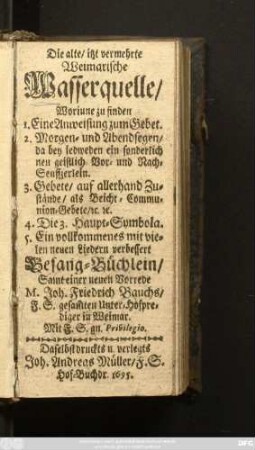 Die alte/ itzt vermehrte
Weimarische
Wasserquelle/
Worinne zu finden
1. Eine Anweisung zum Gebet.
2. Morgen- und Abendsegen/
da bey iedweden ein sonderlich
neu geistlich Vor- und Nach-
Seufftzerlein.
3. Gebete/ auf allerhand Zu-
stände/ als Beicht- Commu-
nion-Gebete/ ꝛc. ꝛc.
4. Die 3. Haupt-Symbola.
5. Ein vollkommenes mit vie-
len neuen Liedern verbessert
Gesang-Büchlein/
Samt einer neuen Vorrede
M. Joh. Friedrich Bauchs/
F. S. gesamten Unter-Hofpre-
diger in Weimar.
Mit F. S. gn. Privilegio.
Daselbst druckts u. verlegts
Joh. Andreas Müller/ F. S.
Hof-Buchdr. 1695.